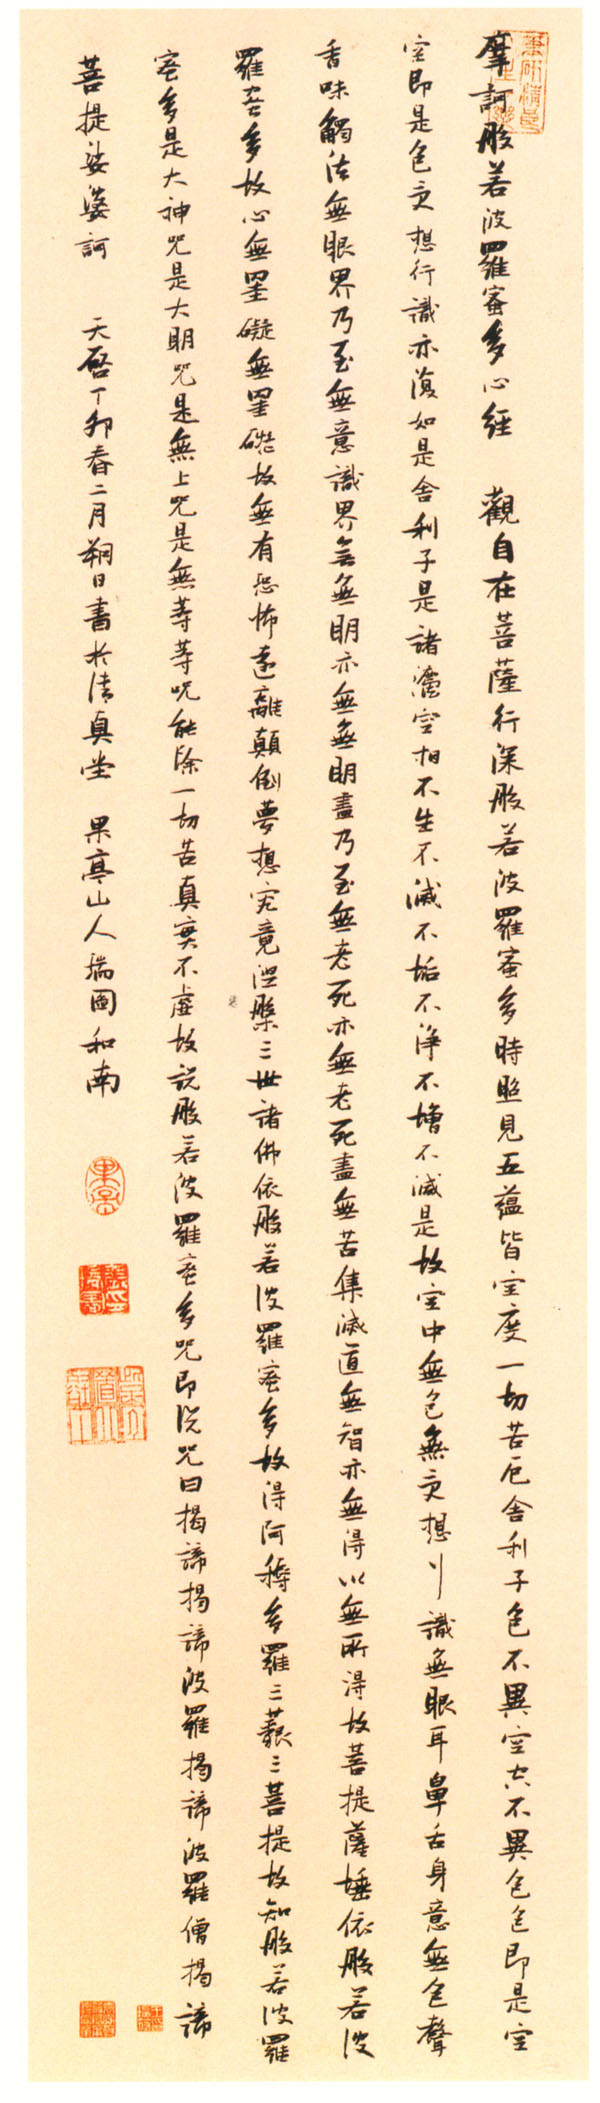 摩訶般若波羅蜜多心經 觀自在菩薩行深般若波羅蜜多時照見五蘊皆空度一切苦厄舍利子色不異空空不異色色即是空
空即是色受想行識亦復如是舍利子是諸法空相不生不滅不垢不淨不增不減是故空中無色無受想行識無眼耳鼻舌身意無色聲
香味觸法無眼界乃至無意識界無無明亦無無明盡乃至無老死亦無老死盡無苦集滅道無智亦無得以無所得故菩提薩埵依般若波
羅蜜多故心無罣礙無罣礙故無有恐怖遠離顛倒夢想究竟涅槃三世諸佛依般若波羅蜜多故得阿耨多羅三藐三菩提故知般若波羅
蜜多是大神咒是大明咒是無上咒是無等等咒能除一切苦真實不虛故說般若波羅蜜多咒即說咒曰揭諦揭諦波羅揭諦波羅僧揭諦
菩提娑婆訶 天啓丁卯春二月朔日書於清真堂 果亭山人瑞圖和南